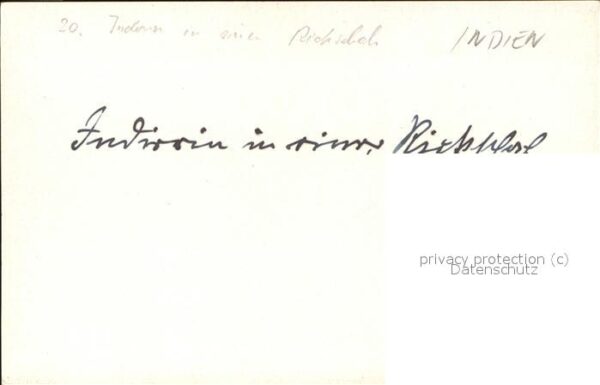 20. Inderin in einer Rickschah INDIEN
Indierin in einer Rickschah
privacy protection (c)
Datenschutz